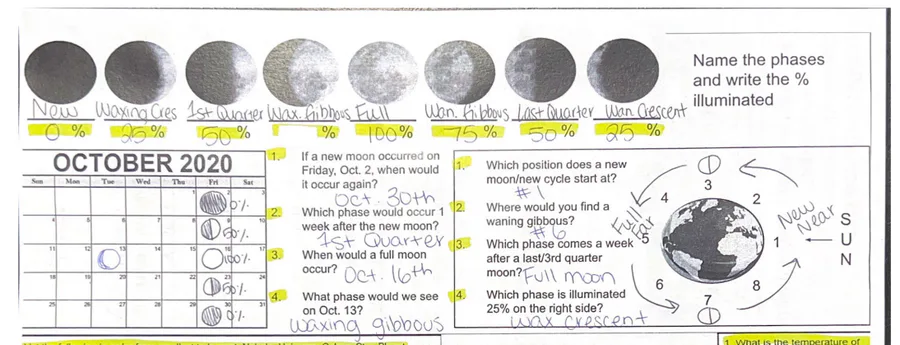 New Waxing Cres 1st Quarter Wax. Gibbous Full Wan. Gibbous Last Quarter Wan. Crescent
0 % 25 % 50 % % 100% 75 % 50 % 25 %
Name the phases
and write the %
illuminated
OCTOBER 2020
Sun Mon Tue Wed Thu Fri Sat
1 2 3
0%
4 5 6 7 8 9 10
50%
11 12 13 14 15 16 17
100%
18 19 20 21 22 23 24
50%
25 26 27 28 29 30 31
0%
1. If a new moon occurred on
Friday, Oct. 2, when would
it occur again?
Oct. 30th
2. Which phase would occur 1
week after the new moon?
1st Quarter
3. When would a full moon
occur?
Oct. 16th
4. What phase would we see
on Oct. 13?
waxing gibbous
1. Which position does a new
moon/new cycle start at?
#1
2. Where would you find a
waning gibbous?
#6
3. Which phase comes a week
after a last/3rd quarter
moon? Full moon
4. Which phase is illuminated
25% on the right side?
wax crescent
3
4 2
Full
Far
5 1
New
Near
6 8
7
S
U
N
1. What is the temperature of